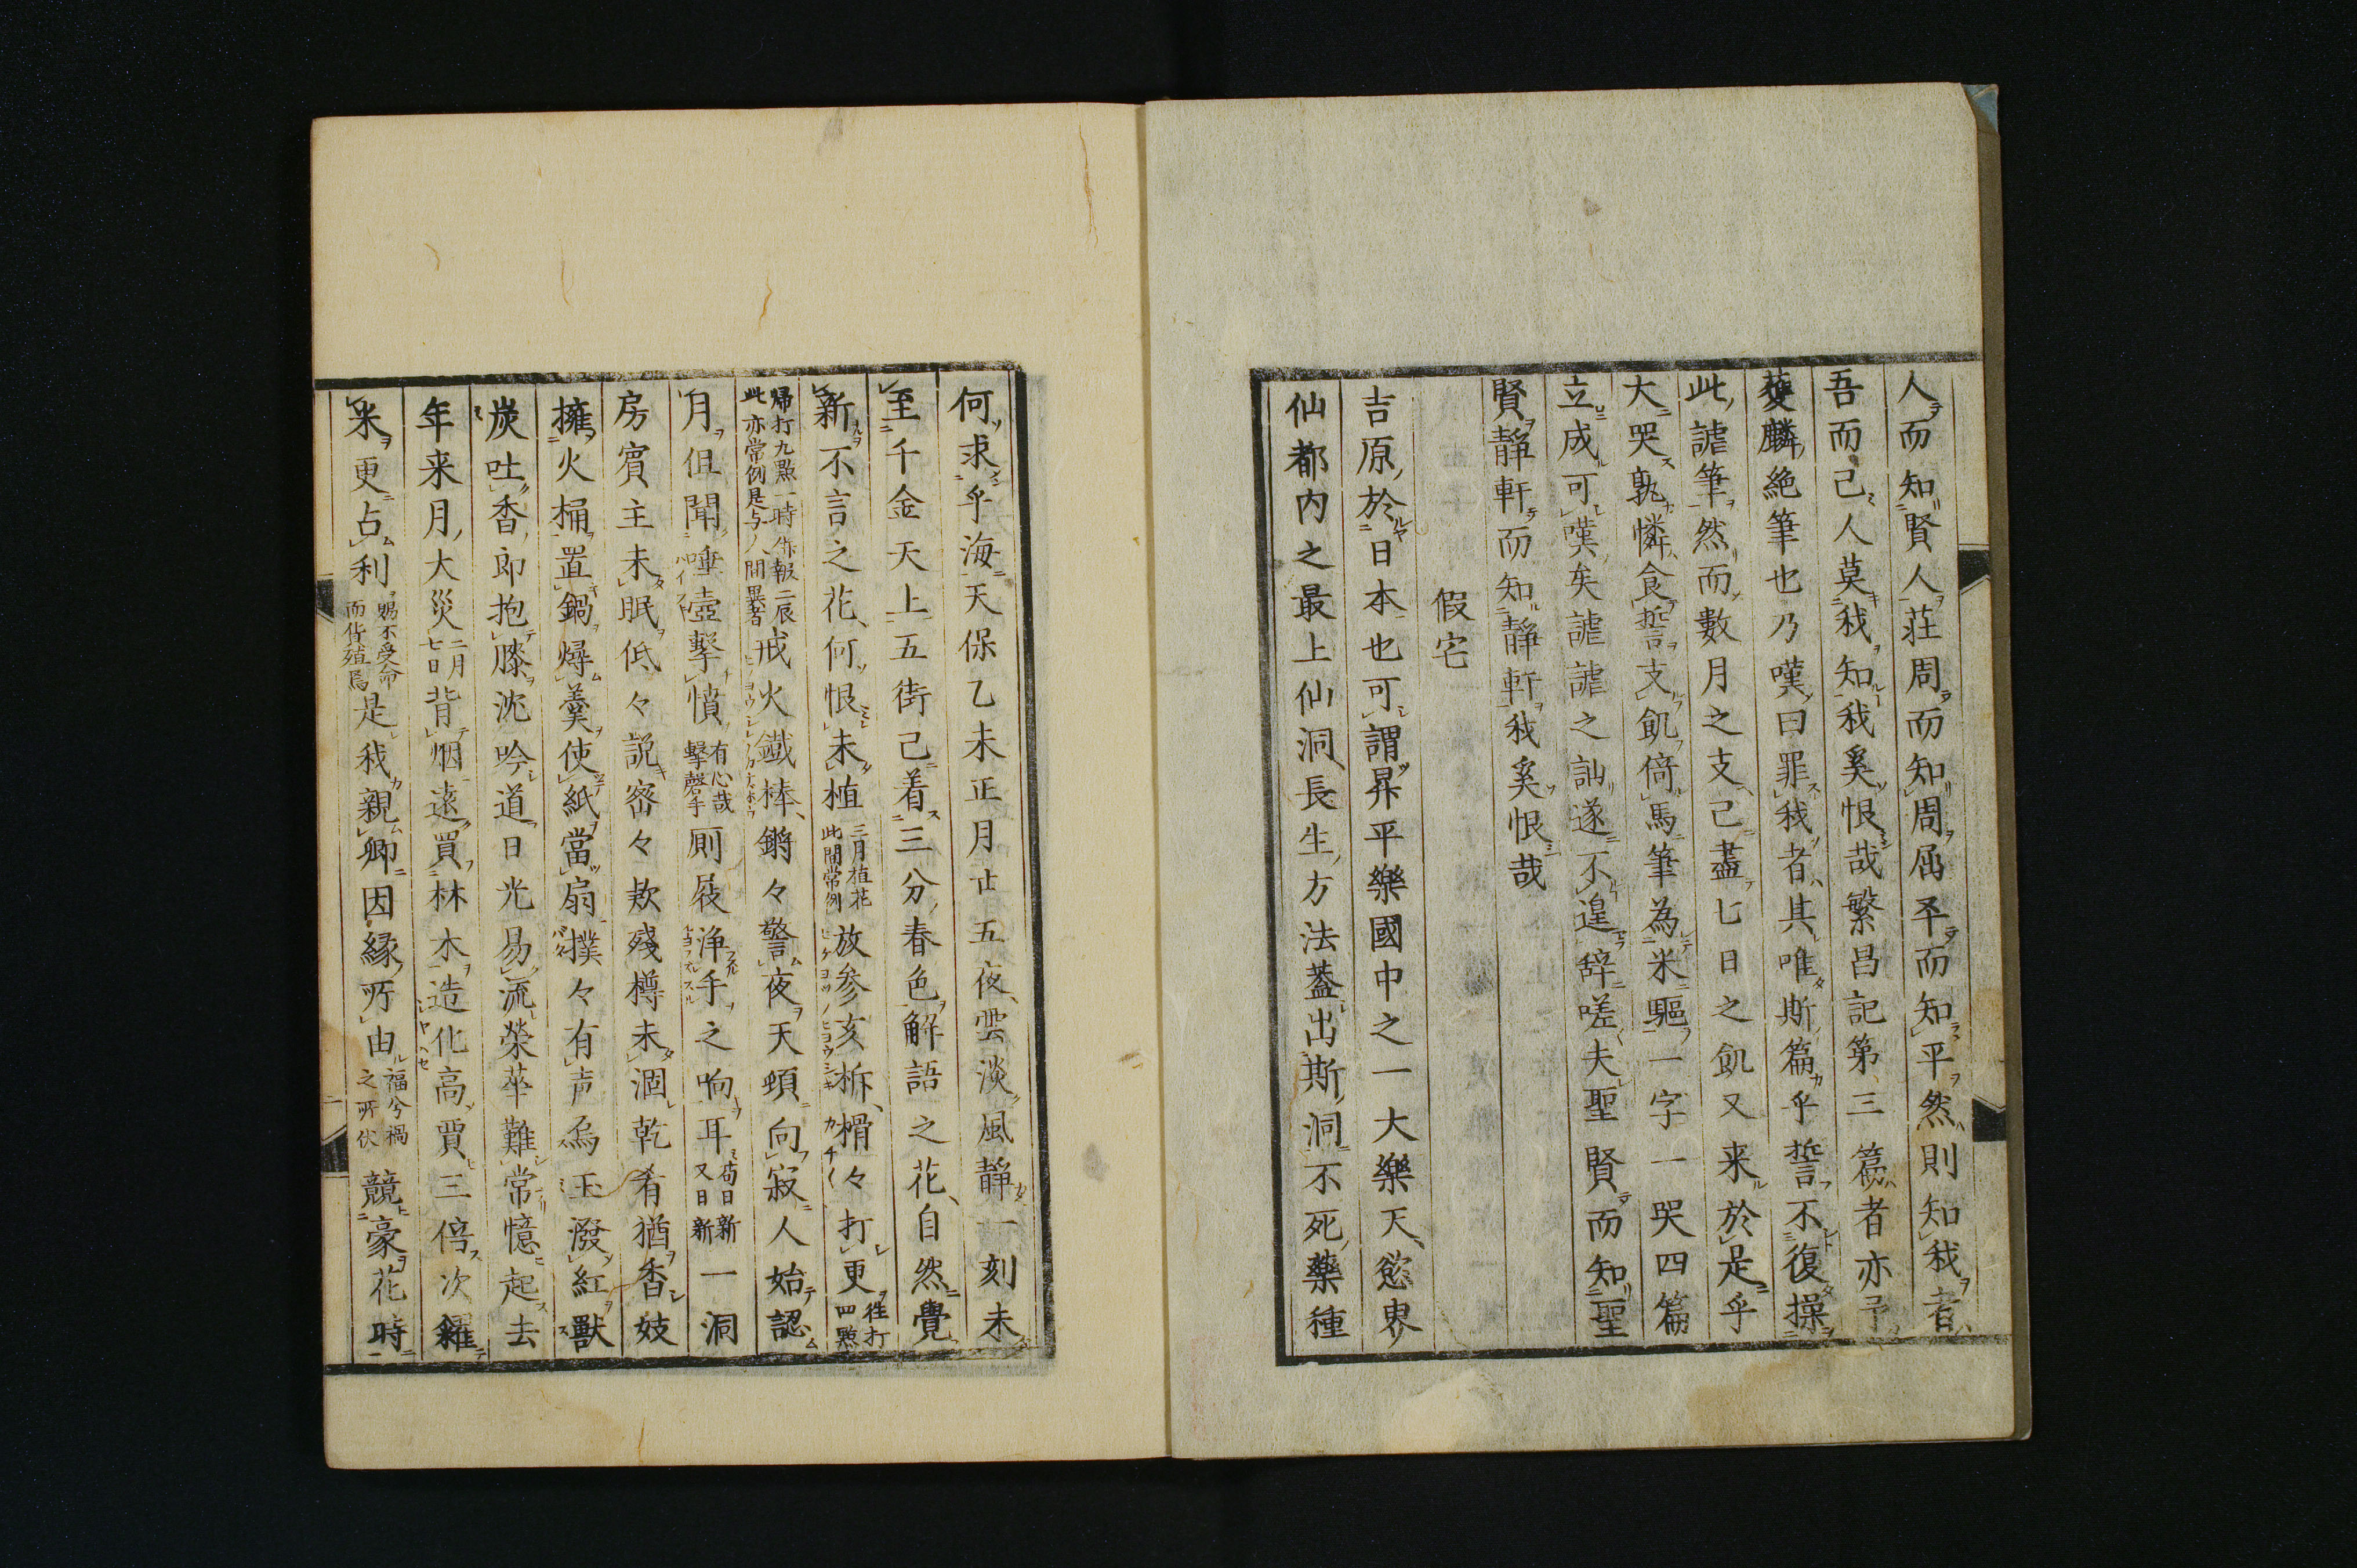 人而知賢人荘周而知周屈平而知平然則知我者
吾而已人莫我知我奚恨哉繁昌記第三篇者亦予
獲麟絶筆也乃嘆曰罪我者其唯斯篇乎誓不復操
此謔筆然而數月之支已盡七日之飢又来於是乎
大哭孰憐食誓支飢倚馬筆為米驅一字一哭四篇
立成可嘆矣謔謔之訕遂不遑辞嗟夫聖賢而知聖
賢靜軒而知靜軒我奚恨哉
假宅
吉原於日本也可謂昇平樂國中之一大樂天慾界
仙都内之最上仙洞長生方法蓋出斯洞不死藥種
何求乎海天保乙未正月廿五夜雲淡風靜一刻未
至千金天上五街已着三分春色解語之花自然覺
新不言之花何恨未植三月植花此間常例放參亥柝榾々打更往打四點
帰打九點一時作報二辰此亦常例是与人間異者戒火鐵棒鏘々警夜天頓向寂人始認
月但聞唾壺擊憤有心哉擊磬手厠屐浄手之响耳苟日新又日新一洞
房賓主未眠低々説密々款殘樽未涸乾肴猶香妓
擁火桶置鍋燖羹使紙當扇撲々有声烏玉潑紅獸
炭吐香即抱膝沈吟道日光易流榮華難常憶起去
年来月大災二月七日背烟遠買林木造化高賈三倍次糴
米更占利賜不受命而貨殖焉是我親卿因縁所由福兮禍之所伏競豪花時